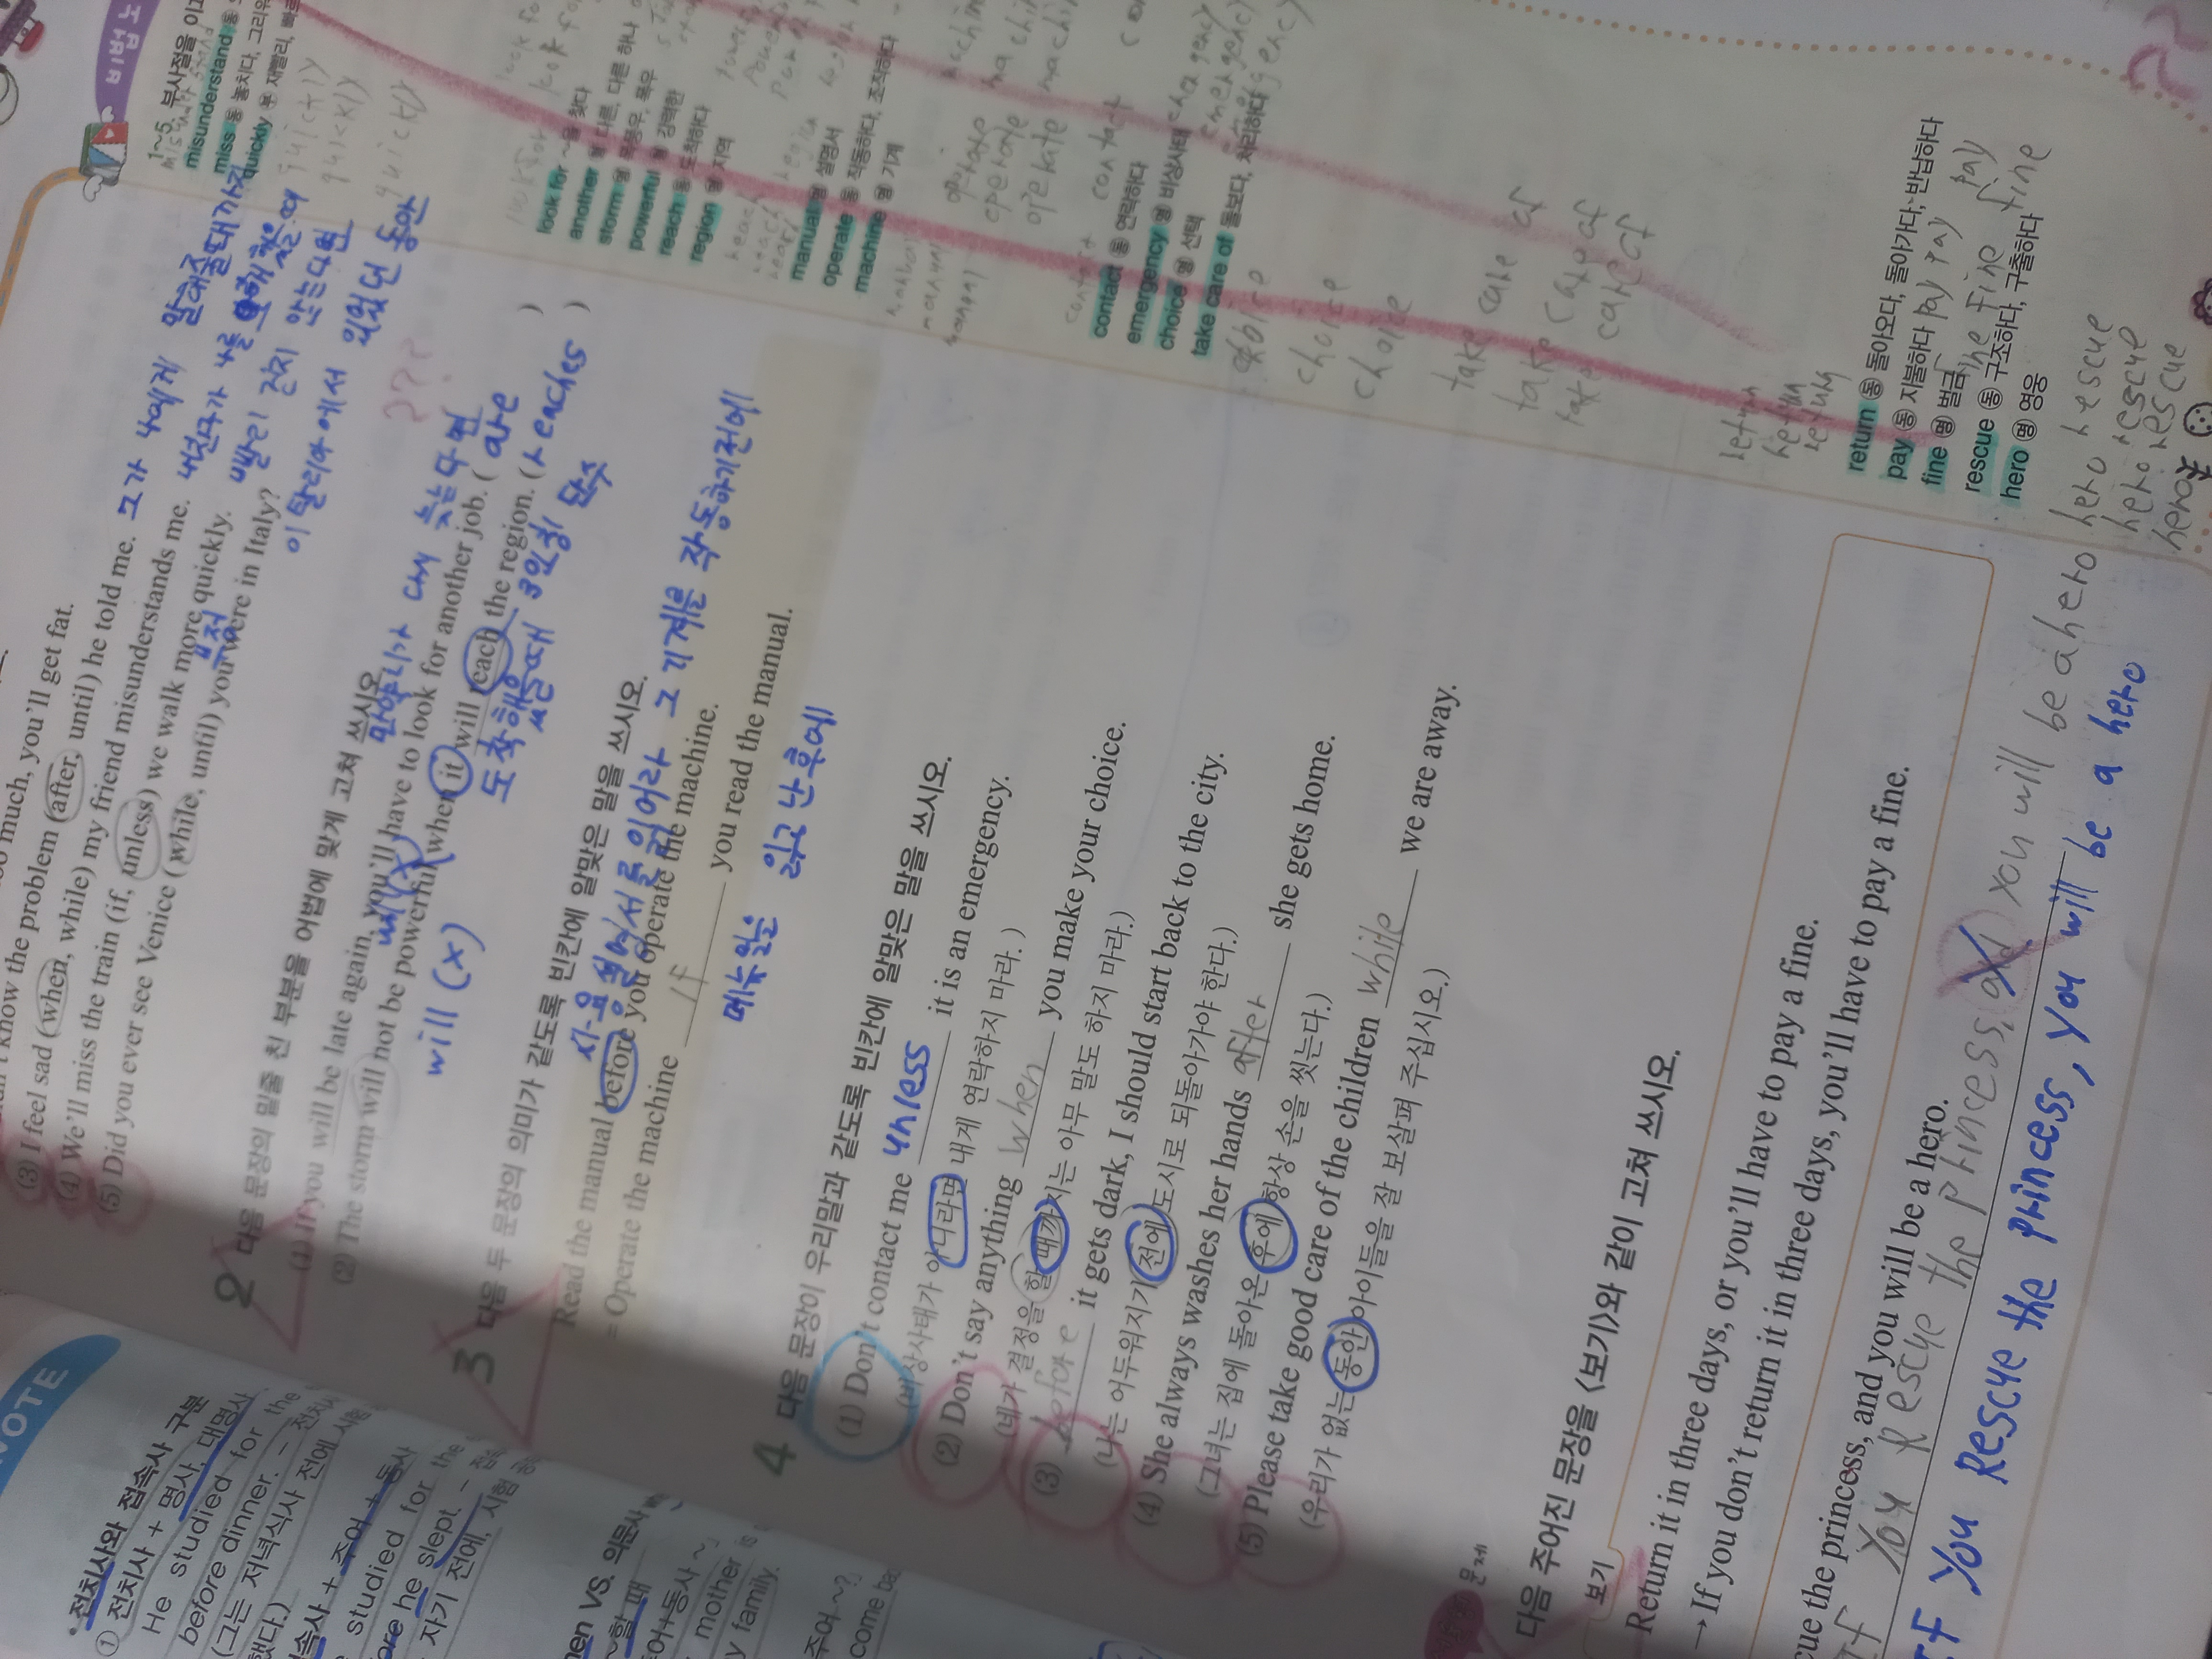 much, you'll get fat.
know the problem (after, until) he told me. 그가 나에게 말해줄때까지
(3) I feel sad (when, while) my friend misunderstands me. 내친구가 나를
(4) We'll miss the train (if, unless) we walk more quickly. 빨리 걷지 않는다면
(5) Did you ever see Venice (while, until) you were in Italy?
이탈리아에서 있었던 동안
2 다음 문장의 밑줄 친 부분을 어법에 맞게 고쳐 쓰시오.
(1) If you will be late again, you'll have to look for another job. ( are )
will (x)
(2) The storm will not be powerful when it will reach the region. ( reaches )
will (x)
도착했을때 3인칭 단수
3 다음 두 문장의 의미가 같도록 빈칸에 알맞은 말을 쓰시오.
사용설명서를 읽어라 그 기계를 작동하기전에
Read the manual before you operate the machine.
= Operate the machine if you read the manual.
메뉴얼을 읽고 난 후에
4 다음 문장이 우리말과 같도록 빈칸에 알맞은 말을 쓰시오.
(1) Don't contact me unless it is an emergency.
(비상사태가 아니라면 내게 연락하지 마라.)
(2) Don't say anything when you make your choice.
(네가 결정을 할 때까지는 아무 말도 하지 마라.)
(3) before it gets dark, I should start back to the city.
(나는 어두워지기 전에 도시로 되돌아가야 한다.)
(4) She always washes her hands after she gets home.
(그녀는 집에 돌아온 후에 항상 손을 씻는다.)
(5) Please take good care of the children while we are away.
(우리가 없는 동안 아이들을 잘 보살펴 주십시오.)
문제
다음 주어진 문장을 〈보기〉와 같이 고쳐 쓰시오.
보기
Return it in three days, or you'll have to pay a fine.
→ If you don't return it in three days, you'll have to pay a fine.
cue the princess, and you will be a hero.
If You Rescue the princess, and you will be a hero
If You Rescue the princess, you will be a hero
1~5 부사절을
misunderstand 동
miss 동 놓치다, 그리워
quickly 부 재빨리, 빠르
quickly
quickly
quickly
look for ~을 찾다
another 형 다른, 다른 하나
storm 명 폭풍우, 폭우
powerful 형 강력한
reach 동 도착하다
region 명 지역
manual 명 설명서
operate 동 작동하다, 조작하다
machine 명 기계
manual
manual
operate
operate
machine
machine
contact contact
contact 동 연락하다
emergency 명 비상사태
choice 명 선택
take care of 돌보다, 처리하다
emergency
emergency
choice
choice
choice
take care of
take care of
take care of
return
return
return
return 동 돌아오다, 돌아가다, 반납하다
pay 동 지불하다 pay pay pay
fine 명 벌금 fine fine fine
rescue 동 구조하다, 구출하다
hero 명 영웅
hero rescue
hero rescue
hero rescue
NOTE
• 전치사와 접속사 구분
① 전치사 + 명사, 대명사
He studied for the
before dinner. - 전치사
(그는 저녁식사 전에 시험
했다.)
속사 + 주어 + 동사
studied for the
ore he slept. -
자기 전에, 시험
hen vs. 의문사
~할 때
어+동사~
mother is
y family.
주어~?
come ba